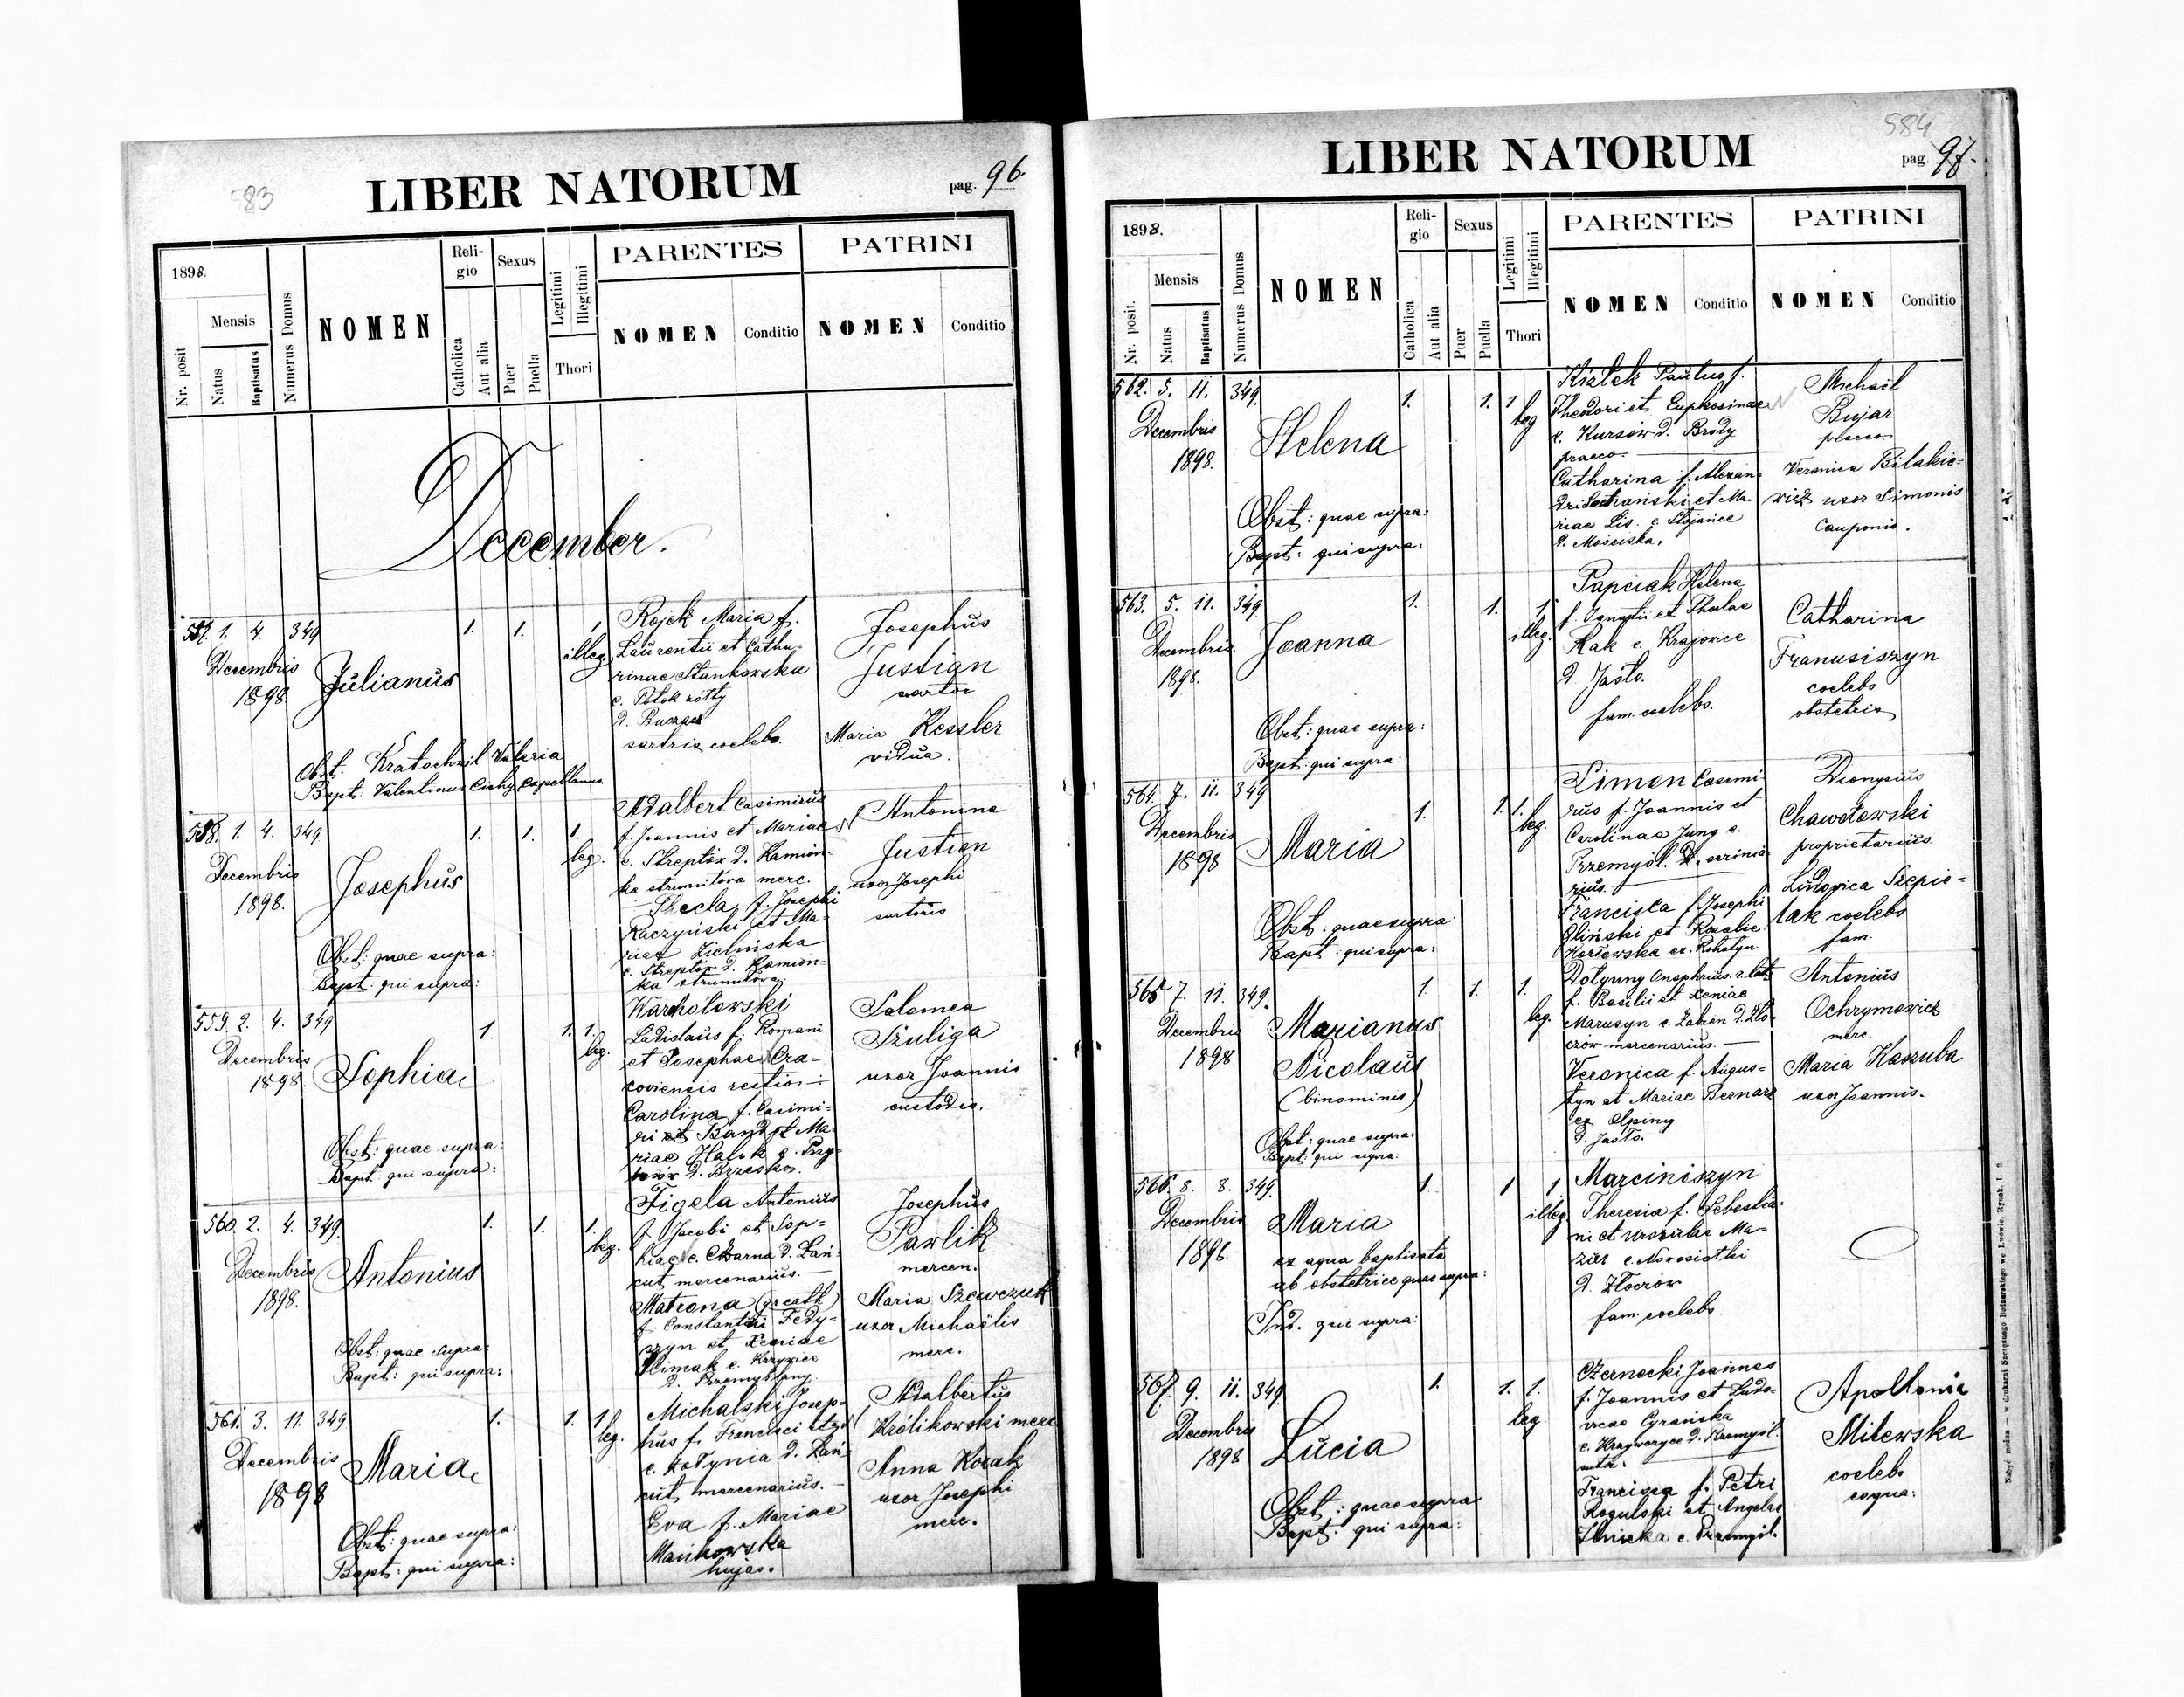 583
LIBER NATORUM
pag. 96.
1898.
Nr. posit
Mensis
Natus
Baptisatus
Numerus Domus
NOMEN
Reli-
gio
Catholica
Aut alia
Sexus
Puer
Puella
Legitimi
Illegitimi
Thori
PARENTES
NOMEN
Conditio
PATRINI
NOMEN
Conditio
December.
557. 1. 4. 349
Decembris
1898
Julianus
1. 1. 1
illeg.
Rojek Maria f.
Laurentii et Catha-
rinae Stankowska
e. Potok zolty
d. Buczacz
sartrix coelebs.
Josephus
Justian
sartor
Maria Kessler
vidua.
Obst: Kratochwil Valeria
Bapt: Valentinus Cichy Capellanus
558. 1. 4. 349
Decembris
1898.
Josephus
1. 1. 1.
leg.
Adalbert Casimirus
f. Joannis et Mariae
e. Streptów d. Kamion-
ka strumilova merc.
Thecla f. Josephi
Raczyński et Ma-
riae Zielinska
e. Streptów d. Kamion-
ka strumilova
Antonina
Justian
uxor Josephi
sartoris
Obst: quae supra:
Bapt: qui supra:
559. 2. 4. 349
Decembris
1898.
Sophia
1. 1. 1.
leg.
Ladislaus f. Romani
et Josephae Cra-
coviensis restior
Carolina f. Casimi-
ri et Band et Ma-
riae Halik e.
d. Brzesko.
Salomea
Szuliga
uxor Joannis
custodis.
Obst: quae supra:
Bapt: qui supra:
560. 2. 4. 349.
Decembris
1898.
Antonius
1. 1. 1.
leg.
Figela Antonius
f. Jacobi et Sop-
hiae e. Czarna d. Łań-
cut, mercenarius.
Matrona (gr cath)
f. Constantini Fedy-
szyn et Xeniae
Klimak e. Krzywice
d. Przemyslany.
Josephus
Pawlik
mercen.
Maria Szewczuk
uxor Michaëlis
merc.
Obst: quae supra:
Bapt: qui supra:
561. 3. 11. 349
Decembris
1898
Maria
1. 1. 1
leg.
Michalski Josep-
hus f. Francisci
e. Żołynia d. Łań-
cut, mercenarius.
Eva f. Mariae
Mańkowska
hujas.
Adalbertus
Królikowski merc
Anna Kozak
uxor Josephi
merc.
Obst: quae supra:
Bapt: qui supra:
584
LIBER NATORUM
pag. 97.
1898.
Nr. posit.
Mensis
Natus
Baptisatus
Numerus Domus
NOMEN
Reli-
gio
Catholica
Aut alia
Sexus
Puer
Puella
Legitimi
Illegitimi
Thori
PARENTES
NOMEN
Conditio
PATRINI
NOMEN
Conditio
562. 5. 11. 349.
Decembris
1898.
Helena
1. 1. 1
leg
Kizlek Paulus f.
Theodori et Euphosinae
e. Kursów d. Brody
praeco.
Catharina f. Alexan-
dri et Ma-
riae Lis. e. Stojańce
d. Mościska,
Michaël
Bujar
praeco
Veronica Bilakie-
wicz uxor Simonis
Cauponis.
Obst: quae supra:
Bapt: qui supra:
563. 5. 11. 349.
Decembris
1898.
Joanna
1. 1. 1.
illeg.
Papciak Helena
f. Ignatii et Theclae
Rak e. Krajowice
d. Jasło.
fam. coelebs.
Catharina
Franusiszyn
coelebs
obstetrix
Obst: quae supra:
Bapt: qui supra:
564. 7. 11. 349
Decembris
1898
Maria
1. 1. 1.
leg.
Simon Casimi-
rus f. Joannis et
Carolinae Jung e.
Przemyśl. scrinia-
rius.
Francisca f Josephi
Gliński et Rosalie
Kozłowska ex. Rohatyn
Dionysius
Chawotowski
proprietarius
Ludovica Szepie-
lak coelebs
fam.
Obst: quae supra:
Bapt: qui supra:
565 7. 11. 349.
Decembris
1898
Marianus
Nicolaus
(binominis)
1. 1. 1.
leg.
Dolynny Onophrius.
f. Basilii et Xeniae
Marusyn e. Żabien d. Zło-
czów mercenarius.
Veronica f. Augus-
tyn et Mariae Bernarz
ex Olpiny
d. Jasło.
Antonius
Ochrymowicz
merc.
Maria Kaszuba
uxor Joannis.
Obst: quae supra:
Bapt: qui supra:
566. 8. 8. 349.
Decembris
1898.
Maria
ex aqua baptisata
ab obstetrice quae supra:
Ind. qui supra:
1. 1 1
illeg
Marciniszyn
Theresia f. Sebestia-
ni et Urszulae Ma-
zur e. Nowosiołki
d. Złoczów
fam. coelebs
567. 9. 11. 349.
Decembris
1898
Lucia
1. 1. 1.
leg
Czernecki Joannes
f. Joannis et Ludo-
vicae Cyrańska
e. Krzywcryce d. Przemyśl.
sutor
Francisca f. Petri
Rogulski et Angelae
Ilnicka e. Przemyśl.
Apollonia
Milewska
coelebs
coqua.
Obst: quae supra
Bapt: qui supra: